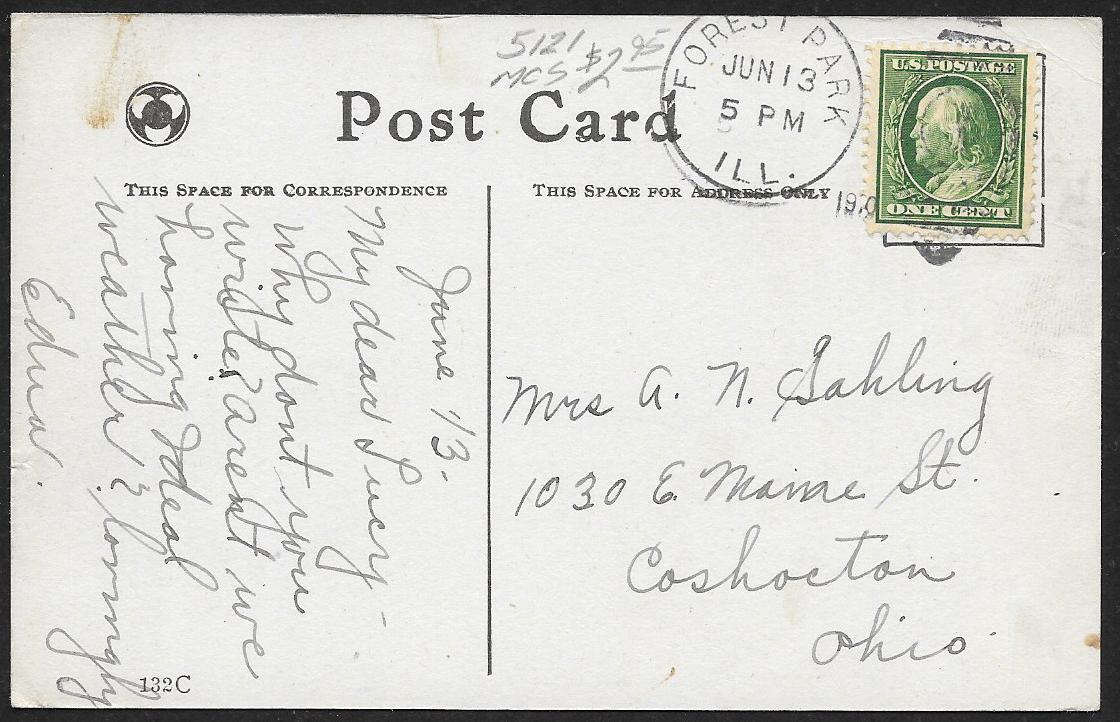 5121 $2 95
MCS
FOREST PARK
JUN 13
5 PM
ILL.
U.S. POSTAGE
ONE CENT
Post Card
THIS SPACE FOR CORRESPONDENCE
THIS SPACE FOR ADDRESS ONLY
June 13.
My dear Lucy –
Why dont you
write? arent we
having Ideal
weather? Lovingly
Edna.
Mrs A. N. Sahling
1030 E. Maine St.
Coshocton
Ohio.
132C